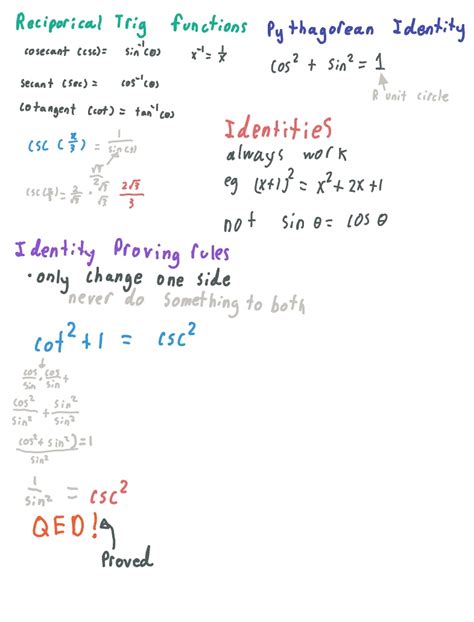 Reciporical Trig functions
cosecant (csc) = sin⁻¹(θ) x⁻¹ = 1/x
secant (sec) = cos⁻¹(θ)
cotangent (cot) = tan⁻¹(θ)
csc(π/3) = 1/sin(π/3)
√3/2
csc(π/3) = 2/√3 · √3/√3 2√3/3
Pythagorean Identity
cos² + sin² = 1
R unit circle
Identities
always work
eg (x+1)² = x² + 2x + 1
not sin θ = cos θ
Identity Proving rules
• only change one side
never do something to both
cot² + 1 = csc²
cos/sin · cos/sin +
cos²/sin² + sin²/sin²
(cos² + sin²) = 1
sin²
1/sin² = csc²
QED!
Proved